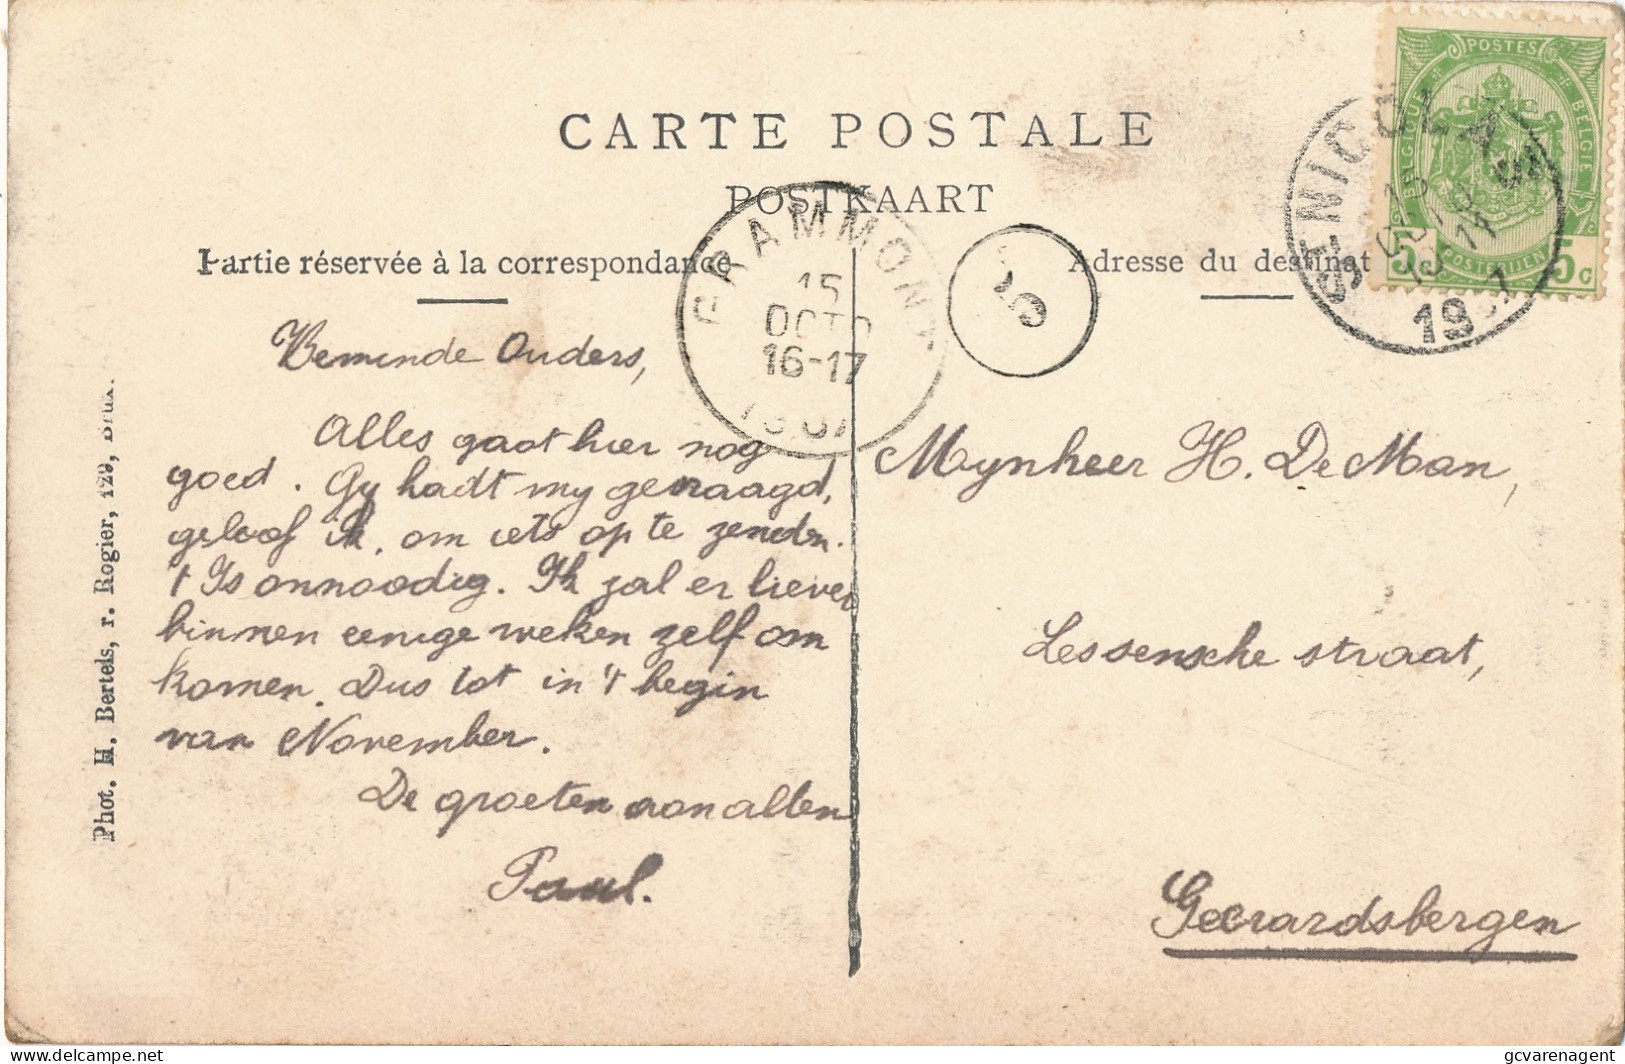 CARTE POSTALE
POSTKAART
Partie réservée à la correspondance
Adresse du destinat
POSTES
BELGIQUE BELGIE
5c 5c
POSTERIJEN
ST NICOLAS
15
OCTO
14
1907
GRAMMONT
15
OCTO
16-17
1907
5
Beminde Ouders,
Alles gaat hier nog
goed. Gy hadt my gevraagd,
geloof ik, om iets op te zenden.
't Is onnoodig. Ik zal er liever
binnen eenige weken zelf om
komen. Dus tot in 't begin
van November.
De groeten aan allen
Paul.
Mynheer H. De Man,
Lessensche straat,
Geerardsbergen
Phot. H. Bertels, r. Rogier, 129, Brux.
gcvarenagent